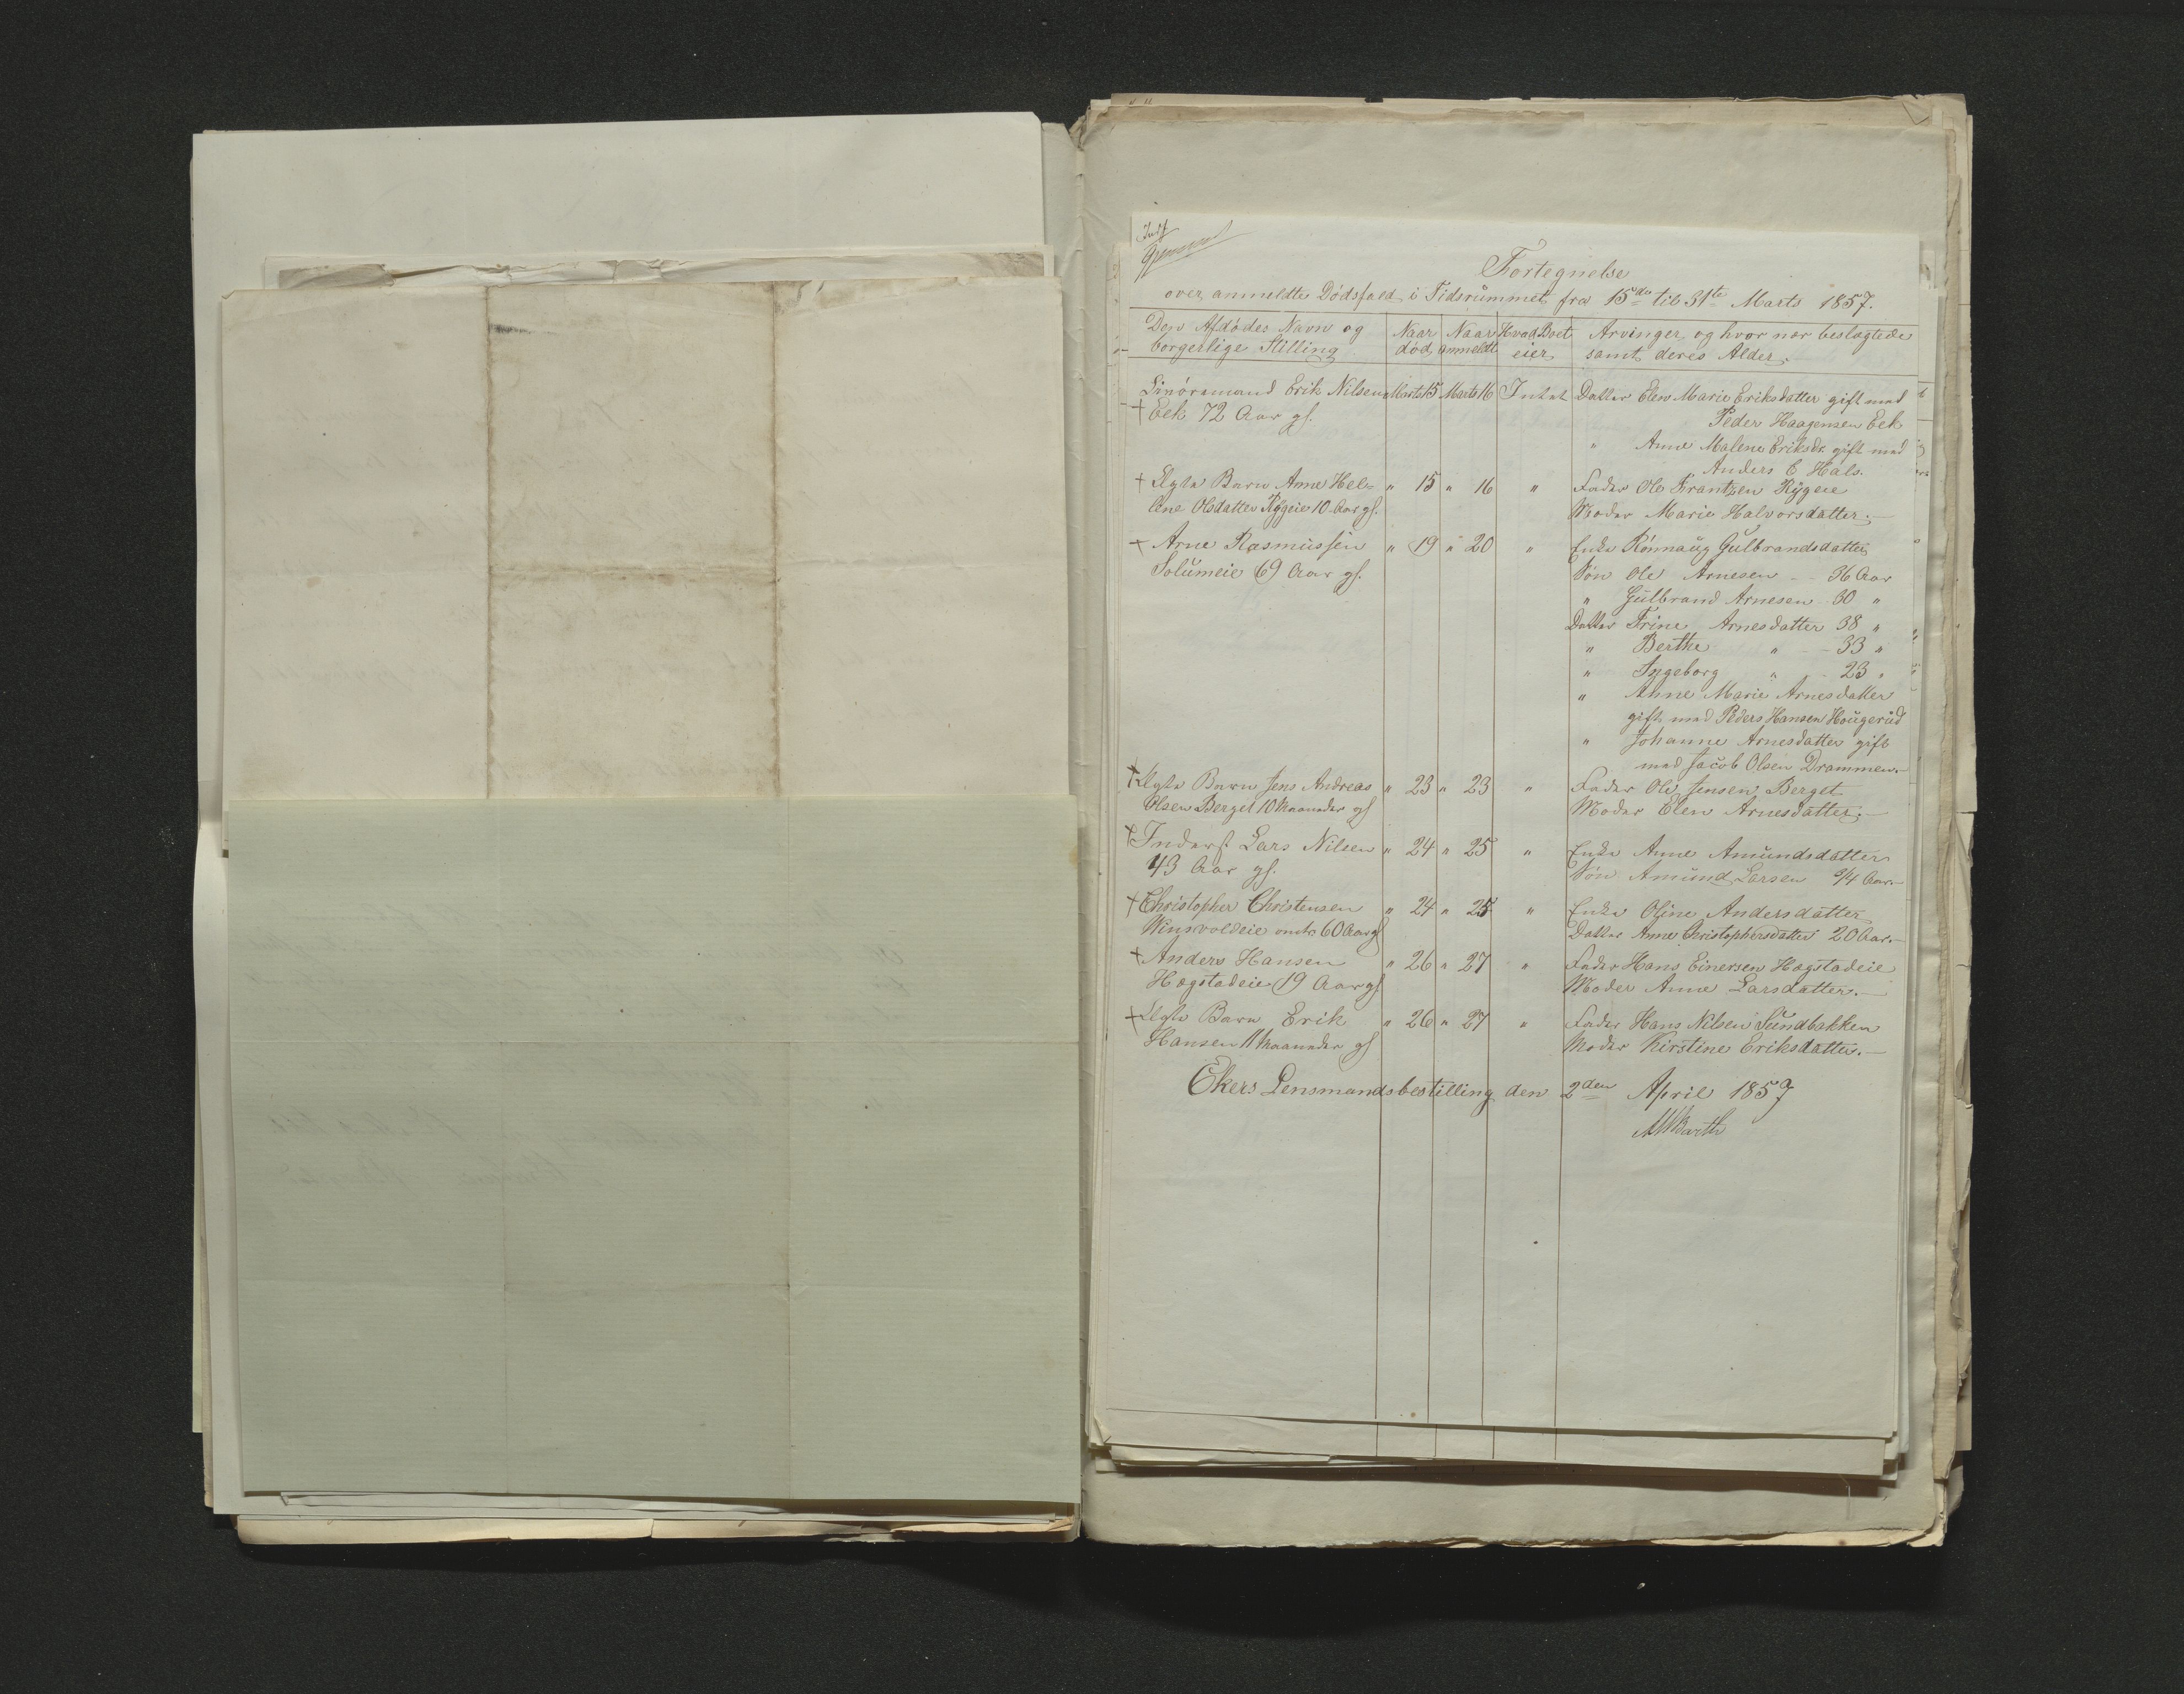 Indf
Fortegnelse
over anmeldte Dödsfald i Tidsrummet fra 15de til 31te Marts 1857.
Den Afdödes Navn og borgerlige Stilling | Naar död | Naar anmeldt | Hvad Boet eier | Arvinger og hvor nær beslægtede samt deres Alder.
Erik Nilsen Marts 15 Marts 16 Intet Datter Elen Marie Eriksdatter gift med
+ Eek 72 Aar gl. Peder Haagensen Eek
" Anne Malene Eriksdr. gift med
Anders E Hals.
+ Ægte Barn Anne Hel= " 15 " 16 " Fader Ole Frantzen Rygeie
lene Olsdatter Rygeie 10 Aar gl. Moder Marie Halvorsdatter.
+ Arne Rasmussen " 19 " 20 " Enke Rönnaug Gulbrandsdatter
Solumeie 69 Aar gl. Sön Ole Arnesen 36 Aar
" Gulbrand Arnesen 30 "
Datter Trine Arnesdatter 38 "
" Berthe " 33 "
" Ingeborg " 23 "
" Anne Marie Arnesdatter
gift med Peder Hansen Hougerud
" Johanne Arnesdatter gift
med Jacob Olsen Drammen.
+ Ægte Barn Jens Andreas " 23 " 23 " Fader Ole Jensen Berget
Olsen Berget 10 Maaneder gl Moder Elen Arnesdatter.
+ Inderst Lars Nilsen " 24 " 25 " Enke Anne Amundsdatter
43 Aar gl. Sön Amund Larsen Aar.
+ Christopher Christensen " 24 " 25 " Enke Oline Andersdatter
60 Aar gl Datter Anne Christophersdatter 20 Aar.
+ Anders Hansen " 26 " 27 " Fader Hans Einersen Hogstadeie
Hogstadeie 19 Aar gl Moder Anne Larsdatter.
+ Ægte Barn Erik " 26 " 27 " Fader Hans Nilsen Sundbakken
Hansen 11 Maaneder gl Moder Kirstine Eriksdatter.
Ekers Lensmandsbestilling den 2den April 1857
MWBarth